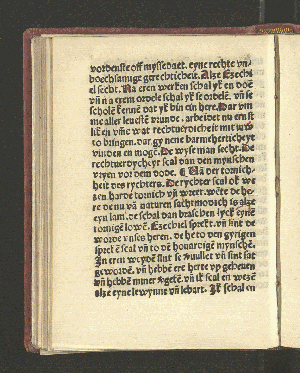 vordenste off myssedaet. eyne rechte vñ
boechsamige gerechticheit. Alze Ezechiel
secht. Na eren werken schal yk en doē
vñ na erem ordele schal yk se ordelē. vñ se
scholē kennē dat yk bin ein here. Dar vm
me aller leuestē vrunde. arbeidet nu
to bringen. dar gy nene barmeherticheyt
vinden en mogē. De wyse man secht. De
rechtuerdycheyt scal dan den mynschen
vryen vor dem dode. ¶ Uā der
heit des rychters. De rychter scal
zen harde tornich vñ wreet.
re de nu vā naturen sachtmodich is alze
eyn lam. de schal dan braschen lyck eyne
lowe. Ezechiel sprekt. vñ sint de
worde vnses heren. de he to den gyrigen
sprekē scal vñ to dē houardigē mynschē.
In eren weydē sint se vullet vñ sint sat
gewordē. vñ hebbē ere herte vp geheuen
vñ hebbē myner getē. vñ ik scal en wezē
alze eyne lewynne vñ lebart. Ik schal en